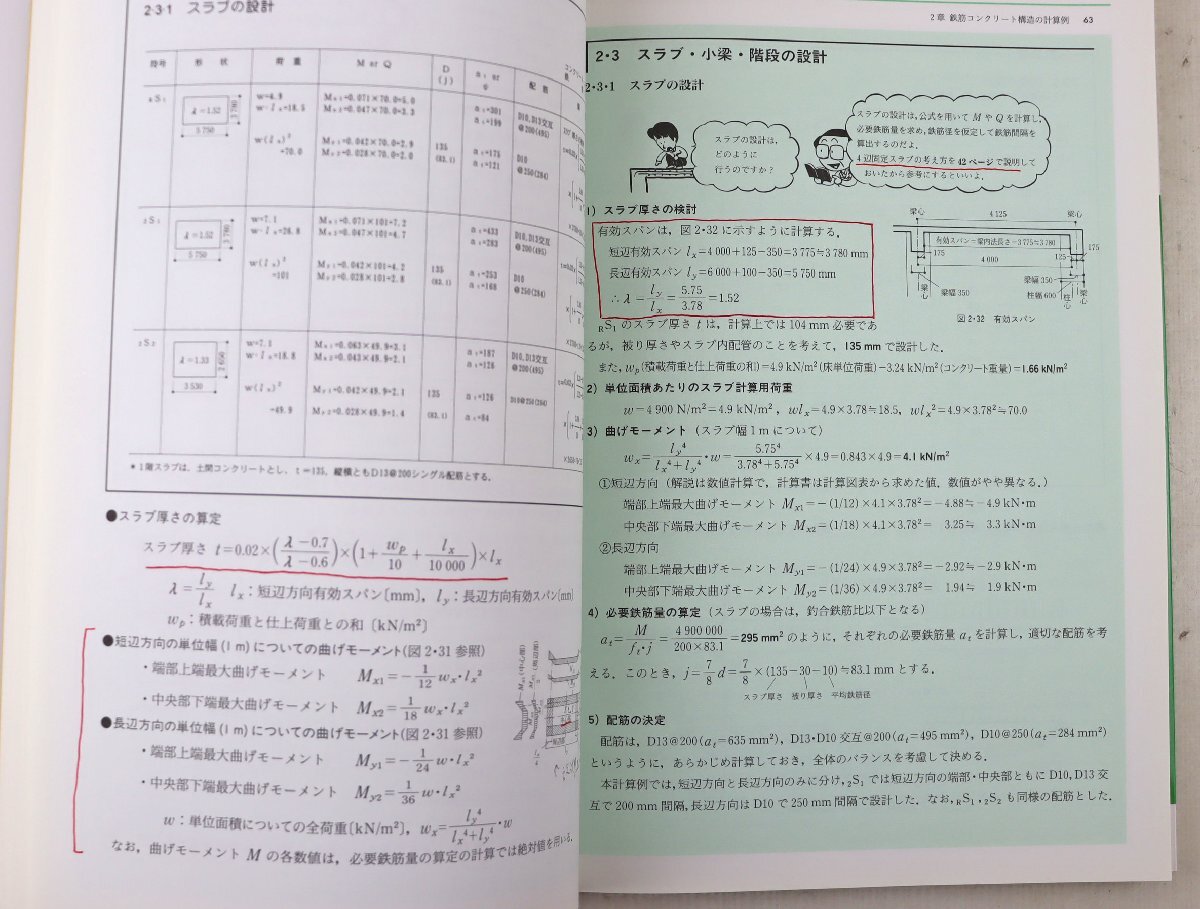 2・3・1 スラブの設計
符号 形状 荷重 M or Q D (j) 配筋
λ=1.52
3 780
5 750
w=4.9
w・lx=18.5
w(lx)²
=70.0
Mx1=0.071×70.0=5.0
Mx2=0.047×70.0=3.3
My1=0.042×70.0=2.9
My2=0.028×70.0=2.0
135
(83.1)
at=301
at=199
at=175
at=121
D10,D13交互
@200(495)
D10
@250(284)
2S1
λ=1.52
3 780
5 750
w=7.1
w・lx=26.8
w(lx)²
=101
Mx1=0.071×101=7.2
Mx2=0.047×101=4.7
My1=0.042×101=4.2
My2=0.028×101=2.8
135
(83.1)
at=433
at=283
at=253
at=168
D10,D13交互
@200(495)
D10
@250(284)
2S2
λ=1.33
2 650
3 530
w=7.1
w・lx=18.8
w(lx)²
=49.9
Mx1=0.063×49.9=3.1
Mx2=0.043×49.9=2.1
My1=0.042×49.9=2.1
My2=0.028×49.9=1.4
135
(83.1)
at=187
at=126
at=126
at=84
D10,D13交互
@200(495)
D10@250(284)
*1階スラブは,土間コンクリートとし,t=135,縦横ともD13@200シングル配筋とする。
●スラブ厚さの算定
スラブ厚さ t=0.02×((λ−0.7)/(λ−0.6))×(1+wp/10+lx/10 000)×lx
λ=ly/lx lx:短辺方向有効スパン〔mm〕,ly:長辺方向有効スパン〔mm〕
wp:積載荷重と仕上荷重との和〔kN/m²〕
●短辺方向の単位幅(1m)についての曲げモーメント(図2・31参照)
・端部上端最大曲げモーメント Mx1=−1/12 wx・lx²
・中央部下端最大曲げモーメント Mx2=1/18 wx・lx²
●長辺方向の単位幅(1m)についての曲げモーメント(図2・31参照)
・端部上端最大曲げモーメント My1=−1/24 w・lx²
・中央部下端最大曲げモーメント My2=1/36 w・lx²
w:単位面積についての全荷重〔kN/m²〕,wx=ly⁴/(lx⁴+ly⁴)・w
なお,曲げモーメント M の各数値は,必要鉄筋量の算定の計算では絶対値を用いる.
2章 鉄筋コンクリート構造の計算例 63
2・3 スラブ・小梁・階段の設計
2・3・1 スラブの設計
スラブの設計は,
どのように
行うのですか?
スラブの設計は,公式を用いて M や Q を計算し,
必要鉄筋量を求め,鉄筋径を仮定して鉄筋間隔を
算出するのだよ.
4辺固定スラブの考え方を42ページで説明して
おいたから参考にするといいよ.
1) スラブ厚さの検討
有効スパンは,図2・32に示すように計算する.
短辺有効スパン lx=4 000+125−350=3 775≒3 780 mm
長辺有効スパン ly=6 000+100−350=5 750 mm
∴λ−ly/lx=5.75/3.78=1.52
梁心 4 125 梁心
有効スパン=梁内法長さ=3 775≒3 780
175 125 175
4 000
梁幅350
梁幅 350 柱幅 600
梁心 柱心 梁心
図2・32 有効スパン
RS1 のスラブ厚さ t は,計算上では 104 mm 必要であ
るが,被り厚さやスラブ内配管のことを考えて,135 mm で設計した.
また,wp(積載荷重と仕上荷重の和)=4.9 kN/m²(床単位荷重)−3.24 kN/m²(コンクリート重量)=1.66 kN/m²
2) 単位面積あたりのスラブ計算用荷重
w=4 900 N/m²=4.9 kN/m², wlx=4.9×3.78≒18.5, wlx²=4.9×3.78²≒70.0
3) 曲げモーメント(スラブ幅1mについて)
wx=ly⁴/(lx⁴+ly⁴)・w=5.75⁴/(3.78⁴+5.75⁴)×4.9=0.843×4.9=4.1 kN/m²
①短辺方向(解説は数値計算で,計算書は計算図表から求めた値.数値がやや異なる.)
端部上端最大曲げモーメント Mx1=−(1/12)×4.1×3.78²=−4.88≒−4.9 kN・m
中央部下端最大曲げモーメント Mx2=(1/18)×4.1×3.78²= 3.25≒ 3.3 kN・m
②長辺方向
端部上端最大曲げモーメント My1=−(1/24)×4.9×3.78²=−2.92≒−2.9 kN・m
中央部下端最大曲げモーメント My2=(1/36)×4.9×3.78²= 1.94≒ 1.9 kN・m
4) 必要鉄筋量の算定(スラブの場合は,釣合鉄筋比以下となる)
at=M/(ft・j)=4 900 000/(200×83.1)=295 mm² のように,それぞれの必要鉄筋量 at を計算し,適切な配筋を考
える.このとき,j=7/8 d=7/8×(135−30−10)≒83.1 mm とする.
スラブ厚さ 被り厚さ 平均鉄筋径
5) 配筋の決定
配筋は,D13@200(at=635 mm²),D13・D10 交互@200(at=495 mm²),D10@250(at=284 mm²)
というように,あらかじめ計算しておき,全体のバランスを考慮して決める.
本計算例では,短辺方向と長辺方向のみに分け,2S1 では短辺方向の端部・中央部ともに D10,D13 交
互で 200 mm 間隔,長辺方向は D10 で 250 mm 間隔で設計した.なお,RS1・2S2 も同様の配筋とした.